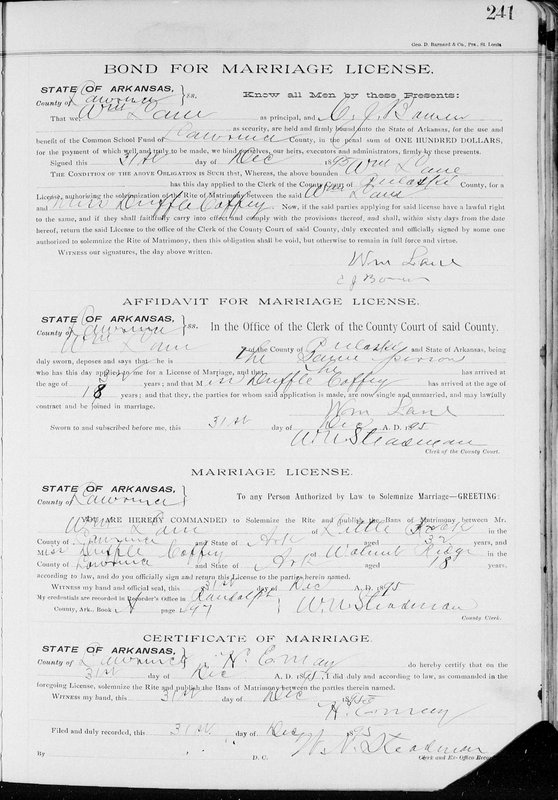 241
Geo. D. Barnard & Co., Prs, St. Louis
BOND FOR MARRIAGE LICENSE.
STATE OF ARKANSAS, } ss.
County of Lawrence
Know all Men by these Presents:
That we, Wm Lane as principal, and
as security, are held and firmly bound unto the State of Arkansas, for the use and
benefit of the Common School Fund of Lawrence county, in the penal sum of ONE HUNDRED DOLLARS,
for the payment of which well and truly to be made, we bind ourselves, our heirs, executors and administrators, firmly by these presents.
Signed this 31st day of Dec 1895
THE CONDITION OF THE ABOVE OBLIGATION IS SUCH that, Whereas, the above bounden Wm Lane
of Pulaski
has this day applied to the Clerk of the County Court of County, for a
License, authorising the solemnization of the Rite of Matrimony between the said Wm Lane
and Miss Duffle Coffey Now, if the said parties applying for said license have a lawful right
to the same, and if they shall faithfully carry into effect and comply with the provisions thereof, and shall, within sixty days from the date
hereof, return the said License to the office of the Clerk of the County Court of said County, duly executed and officially signed by some one
authorized to solemnize the Rite of Matrimony, then this obligation shall be void, but otherwise to remain in full force and virtue.
WITNESS our signatures, the day above written.
Wm Lane
AFFIDAVIT FOR MARRIAGE LICENSE.
STATE OF ARKANSAS, } ss.
County of Lawrence
In the Office of the Clerk of the County Court of said County.
Wm Lane of the County of Pulaski and State of Arkansas, being
duly sworn, deposes and says that he is the same person
who has this day applied to me for a License of Marriage, and that he has arrived at
the age of years; and that Miss Duffle Coffey has arrived at the age of
18 years; and that they, the parties for whom said application is made, are now single and unmarried, and may lawfully
contract and be joined in marriage.
Wm Lane
Sworn to and subscribed before me, this 31st day of Dec A. D. 1895
W. N. Steadman
Clerk of the County Court.
MARRIAGE LICENSE.
STATE OF ARKANSAS, }
County of Lawrence
To any Person Authorized by Law to Solemnize Marriage—GREETING:
YOU ARE HEREBY COMMANDED to Solemnize the Rite and publish the Bans of Matrimony between Mr.
Wm Lane of Little Rock in the
County of Lawrence and State of Ark aged 32 years, and
Miss Duffle Coffey of Walnut Ridge in the
County of Lawrence and State of Ark aged 18 years,
according to law, and do you officially sign and return this License to the parties herein named.
Witness my hand and official seal, this 31st day of Dec A. D. 1895
My credentials are recorded in Recorder's Office in Randolph
County, Ark., Book page
W. N. Steadman
County Clerk.
CERTIFICATE OF MARRIAGE.
STATE OF ARKANSAS, }
County of Lawrence
I, do hereby certify that on the
31st day of Dec A. D. 1895, I did duly and according to law, as commanded in the
foregoing License, solemnize the Rite and publish the Bans of Matrimony between the parties therein named.
Witness my hand, this 31st day of Dec 1895
Filed and duly recorded, this 31st day of Dec 1895
W. N. Steadman
By D. C. Clerk and Ex-Office Recorder